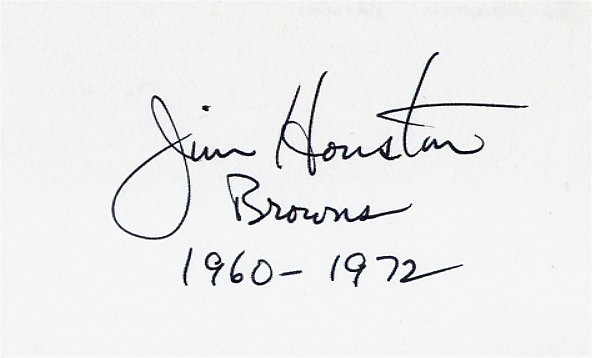 Jim Houston
Browns
1960-1972